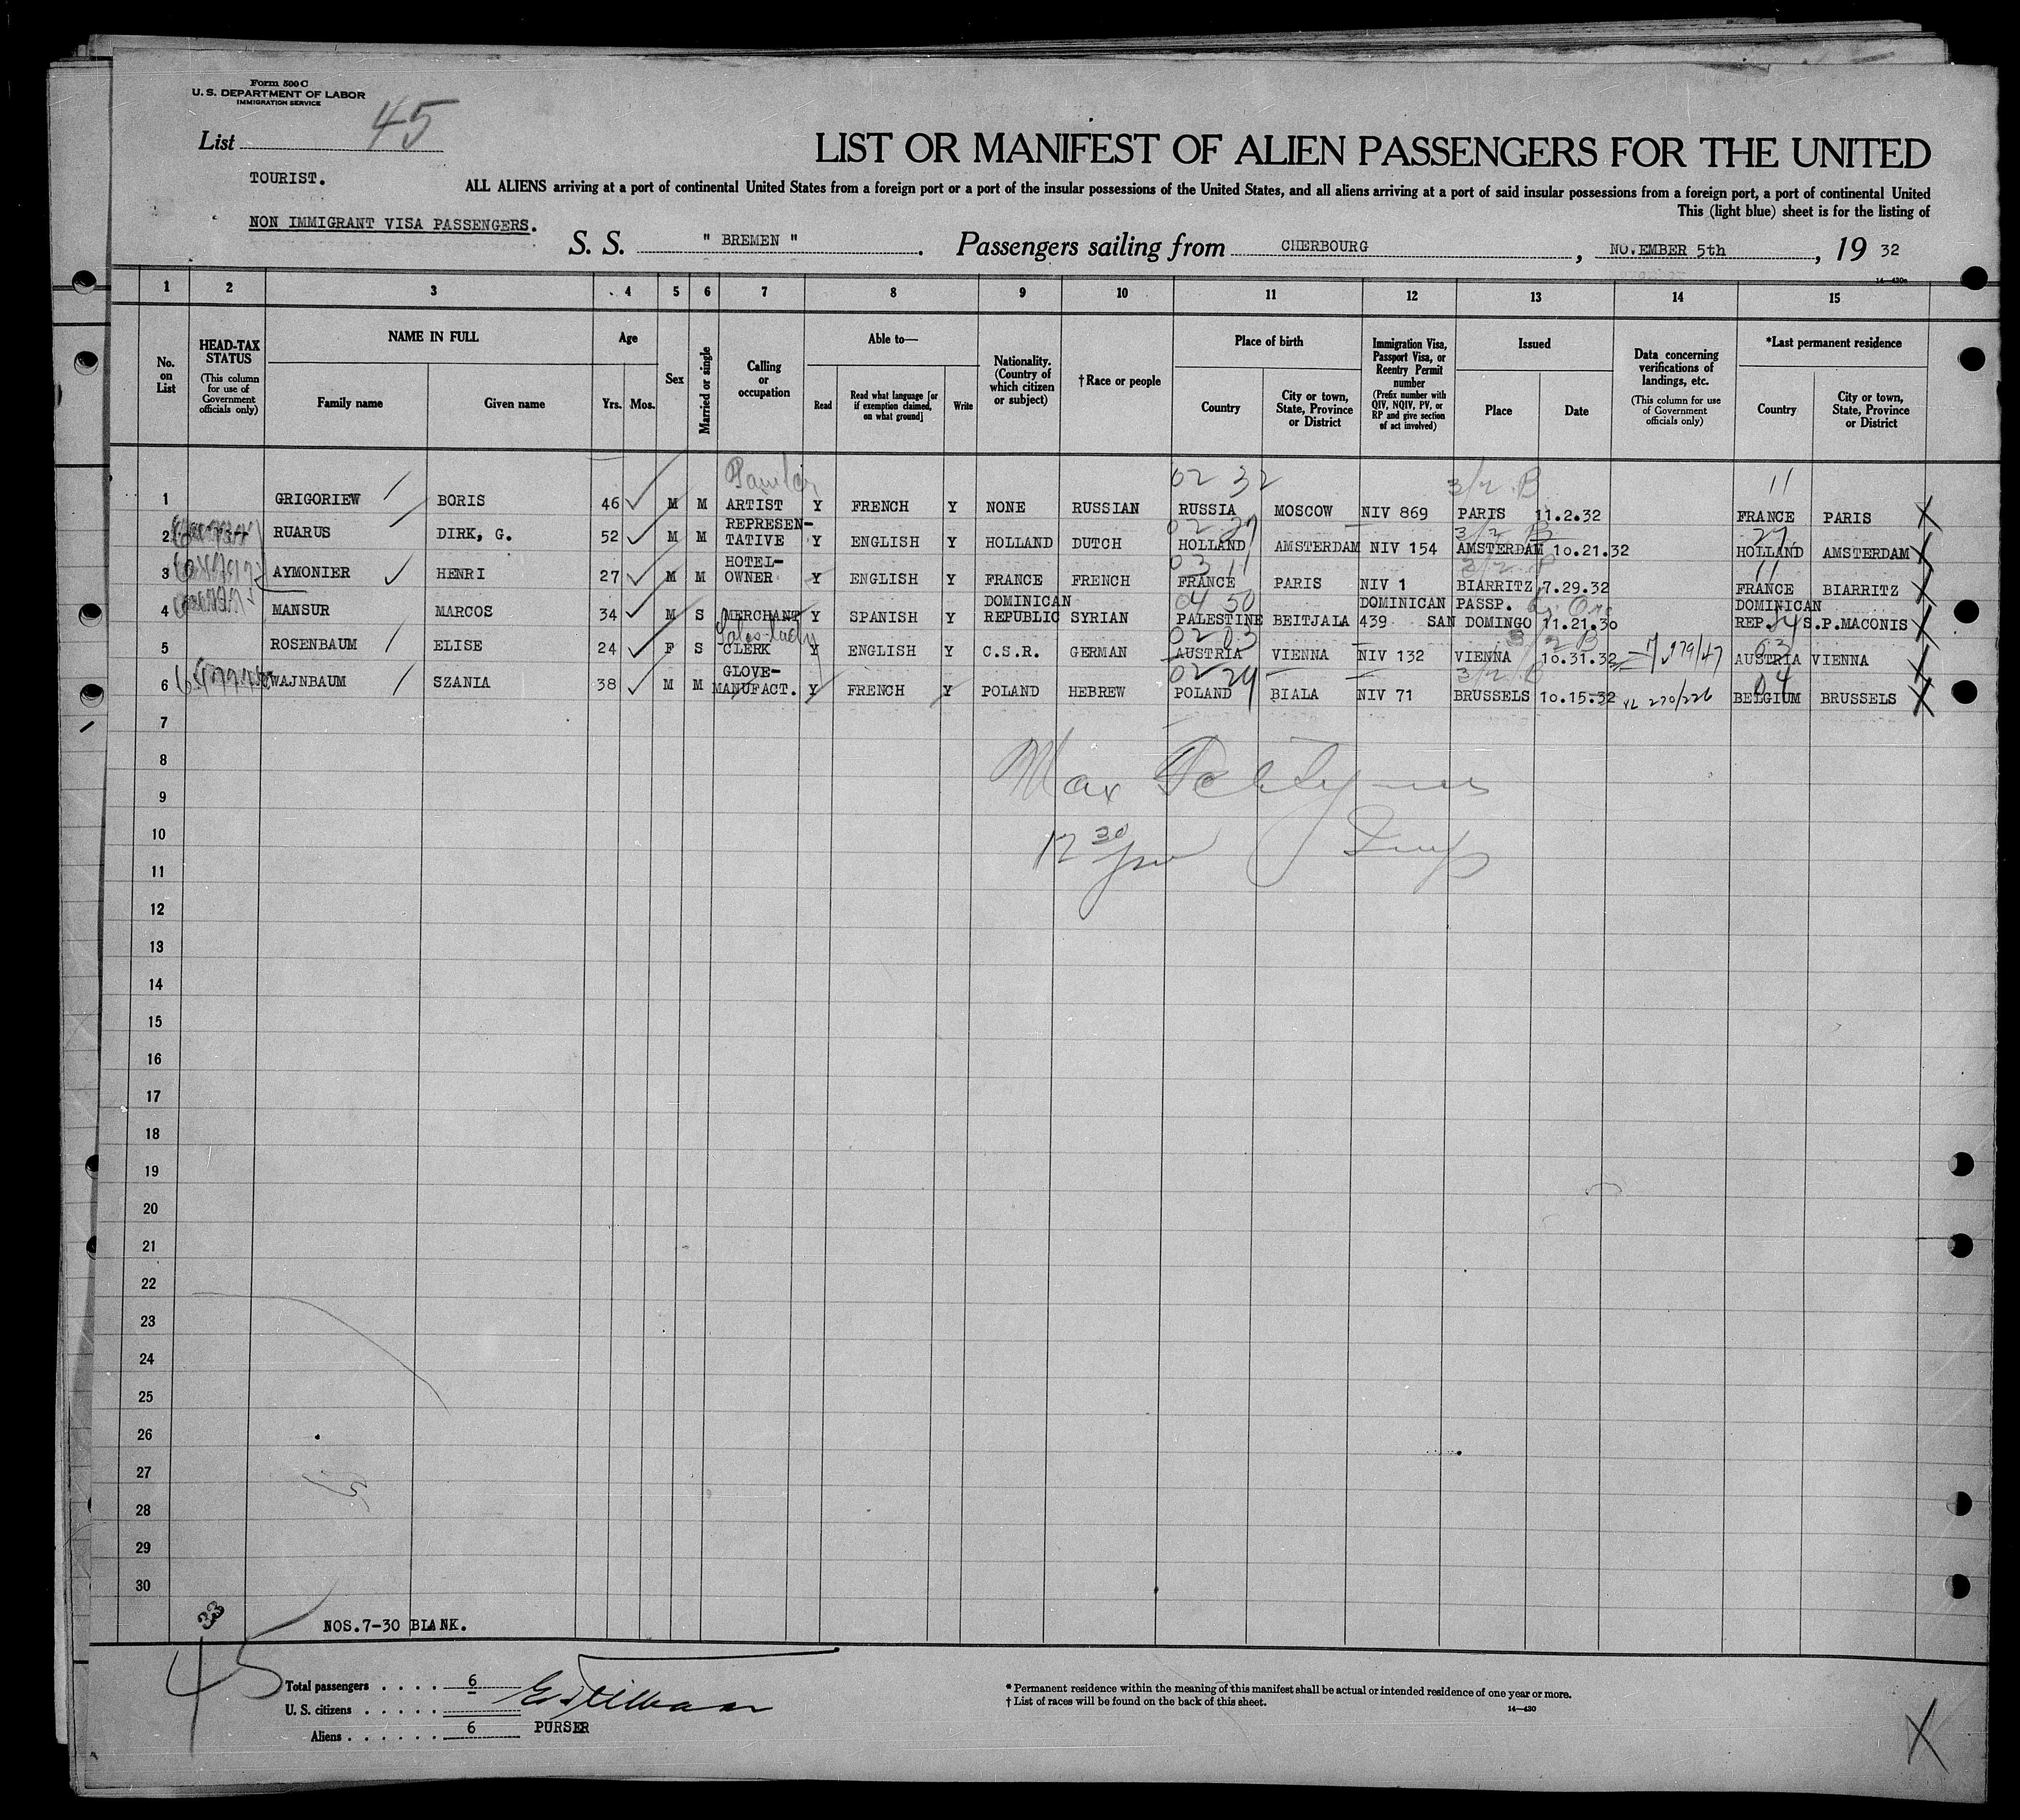 Form 500 C
U. S. DEPARTMENT OF LABOR
IMMIGRATION SERVICE
List 45
LIST OR MANIFEST OF ALIEN PASSENGERS FOR THE UNITED
TOURIST.
ALL ALIENS arriving at a port of continental United States from a foreign port or a port of the insular possessions of the United States, and all aliens arriving at a port of said insular possessions from a foreign port, a port of continental United
This (light blue) sheet is for the listing of
NON IMMIGRANT VISA PASSENGERS.
S. S. " BREMEN ". Passengers sailing from CHERBOURG, NOVEMBER 5th, 19 32
14—430c
1 2 3 4 5 6 7 8 9 10 11 12 13 14 15
No. on List
HEAD-TAX STATUS (This column for use of Government officials only)
NAME IN FULL
Family name Given name
Age
Yrs. Mos.
Sex
Married or single
Calling or occupation
Able to—
Read
Read what language [or if exemption claimed, on what ground]
Write
Nationality. (Country of which citizen or subject)
†Race or people
Place of birth
Country
City or town, State, Province or District
Immigration Visa, Passport Visa, or Reentry Permit number (Prefix number with QIV, NQIV, PV, or RP and give section of act involved)
Issued
Place Date
Data concerning verifications of landings, etc. (This column for use of Government officials only)
*Last permanent residence
Country
City or town, State, Province or District
02 32 3/2 B 11
1 GRIGORIEW BORIS 46 M M ARTIST Y FRENCH Y NONE RUSSIAN RUSSIA MOSCOW NIV 869 PARIS 11.2.32 FRANCE PARIS X
02 27 3/2 B 27
2 RUARUS DIRK, G. 52 M M REPRESEN-TATIVE Y ENGLISH Y HOLLAND DUTCH HOLLAND AMSTERDAM NIV 154 AMSTERDAM 10.21.32 HOLLAND AMSTERDAM X
03 11 11
3 AYMONIER HENRI 27 M M HOTEL-OWNER Y ENGLISH Y FRANCE FRENCH FRANCE PARIS NIV 1 BIARRITZ 7.29.32 FRANCE BIARRITZ X
04 50
4 MANSUR MARCOS 34 M S MERCHANT Y SPANISH Y DOMINICAN REPUBLIC SYRIAN PALESTINE BEITJALA DOMINICAN PASSP. 439 SAN DOMINGO 11.21.30 DOMINICAN REP. S.P.MACONIS
Sales-lady
02 03 3/2 B 03
5 ROSENBAUM ELISE 24 F S CLERK Y ENGLISH Y C.S.R. GERMAN AUSTRIA VIENNA NIV 132 VIENNA 10.31.32 AUSTRIA VIENNA X
02 29 3/2 B 04
6 WAJNBAUM SZANIA 38 M M GLOVE-MANUFACT. Y FRENCH Y POLAND HEBREW POLAND BIALA NIV 71 BRUSSELS 10.15.32 270/226 BELGIUM BRUSSELS X
7
8
Max
9
10
12 30
11
12
13
14
15
16
17
18
19
20
21
22
23
24
25
26
27
28
29
30
33
NOS.7-30 BLANK.
45
Total passengers . . . . 6
U. S. citizens . . . . .
Aliens . . . . . . 6
PURSER
* Permanent residence within the meaning of this manifest shall be actual or intended residence of one year or more.
† List of races will be found on the back of this sheet.
14—430
X